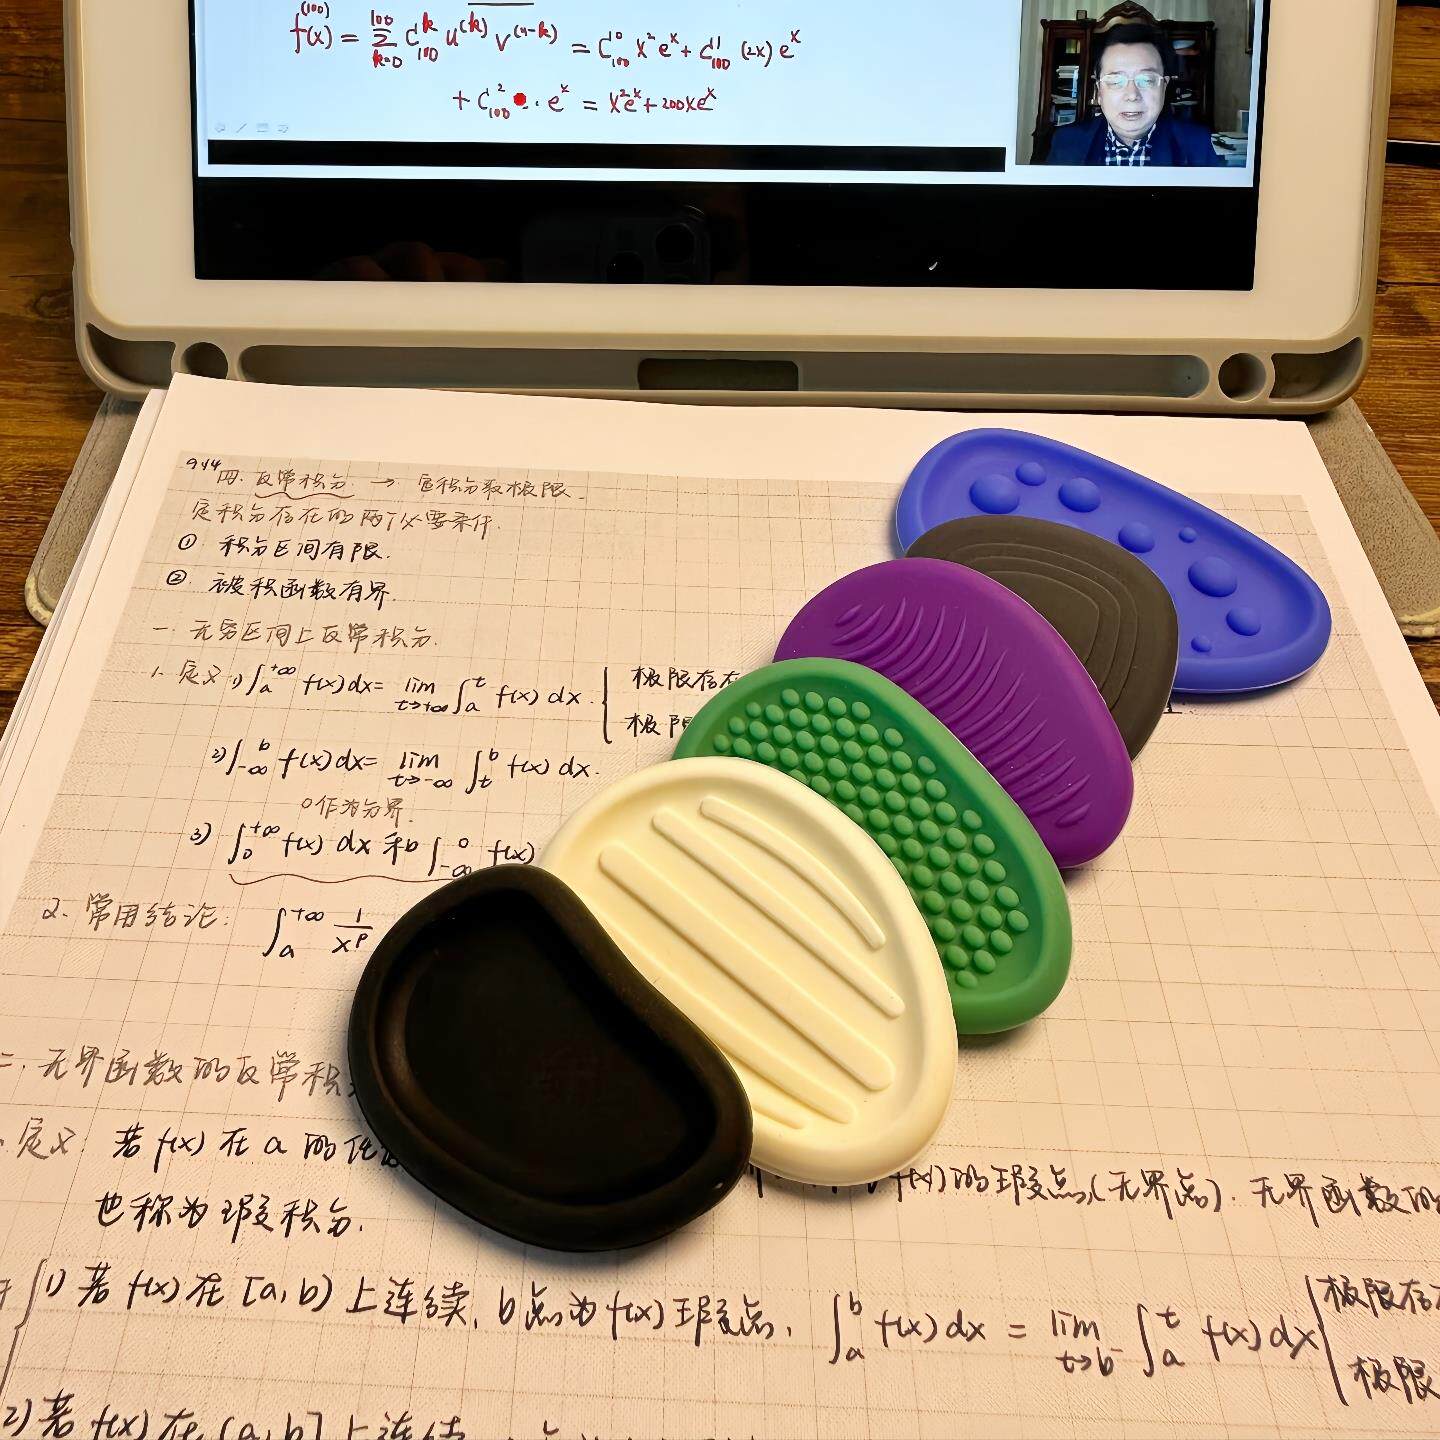 f⁽¹⁰⁰⁾(x) = Σ_{k=0}^{100} C_{100}^{k} u^{(k)} v^{(n-k)} = C_{100}^{0} x² eˣ + C_{100}^{1} (2x) eˣ
+ C_{100}^{2} · eˣ = x²eˣ + 200xeˣ
944
四. 反常积分 → 定积分取极限.
定积分存在的两个必要条件.
① 积分区间有限.
② 被积函数有界.
一. 无穷区间上反常积分.
1. 定义 1) ∫_a^{+∞} f(x) dx = lim_{t→+∞} ∫_a^t f(x) dx. { 极限存在
极限
2) ∫_{-∞}^b f(x) dx = lim_{t→-∞} ∫_t^b f(x) dx.
0作为分界.
3) ∫_0^{+∞} f(x) dx 和 ∫_{-∞}^0 f(x)
2. 常用结论: ∫_a^{+∞} 1/x^p
二. 无界函数的反常积
定义: 若 f(x) 在 a 的任
f(x) 的瑕点(无界点). 无界函数的
也称为瑕积分.
{ 1) 若 f(x) 在 [a, b) 上连续, b点为 f(x) 瑕点, ∫_a^b f(x) dx = lim_{t→b⁻} ∫_a^t f(x) dx { 极限存在
极限
2) 若 f(x) 在 (a, b] 上连续